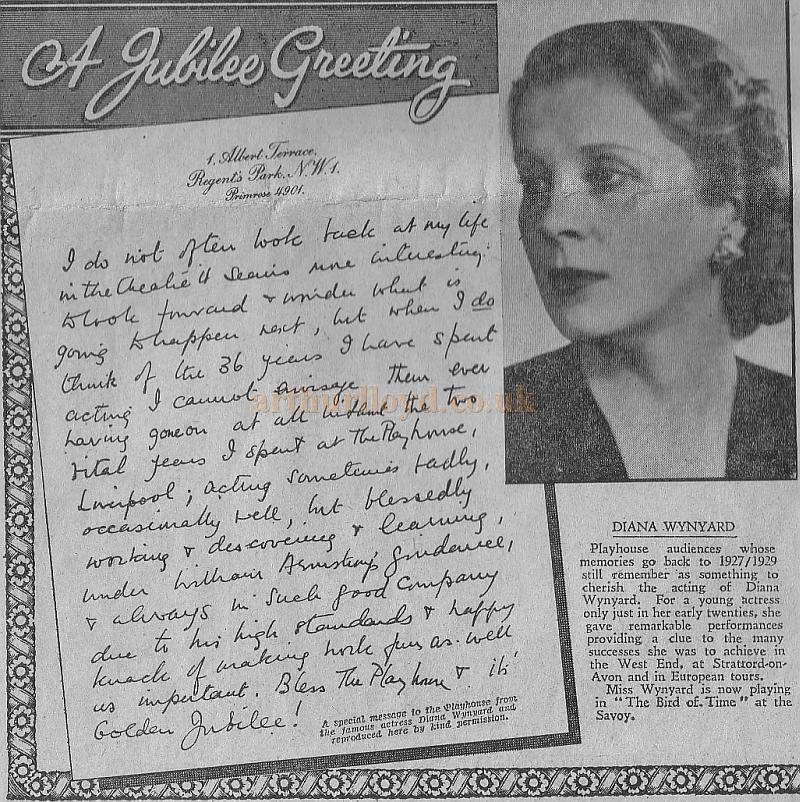 A Jubilee Greeting
1, Albert Terrace,
Regent's Park, N.W.1.
Primrose 4901.
I do not often look back at my life
in the theatre it seems more interesting
to look forward & wonder what is
going to happen next, but when I do
think of the 36 years I have spent
acting I cannot envisage them ever
having gone on at all without the two
vital years I spent at The Playhouse,
Liverpool; acting sometimes badly,
occasionally well, but blessedly
working & discovering & learning,
under William Armstrong's guidance,
& always in such good company
due to his high standards & happy
knack of making work fun as well
as important. Bless The Playhouse & its'
Golden Jubilee!
A special message to the Playhouse from
the famous actress Diana Wynyard and
reproduced here by kind permission.
arthurlloyd.co.uk
DIANA WYNYARD
Playhouse audiences whose
memories go back to 1927/1929
still remember as something to
cherish the acting of Diana
Wynyard. For a young actress
only just in her early twenties, she
gave remarkable performances
providing a clue to the many
successes she was to achieve in
the West End, at Stratford-on-
Avon and in European tours.
Miss Wynyard is now playing
in "The Bird of Time" at the
Savoy.